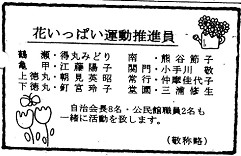 花いっぱい運動推進員
鶴瀬・得丸みどり 南・熊谷節子
亀甲・江藤陽子 関門・小手川敬
上徳丸・朝見英昭 常行・仲摩佳代子
下徳丸・釘宮玲子 堂園・三浦修生
自治会長8名・公民館職員2名も
一緒に活動を致します。
(敬称略)